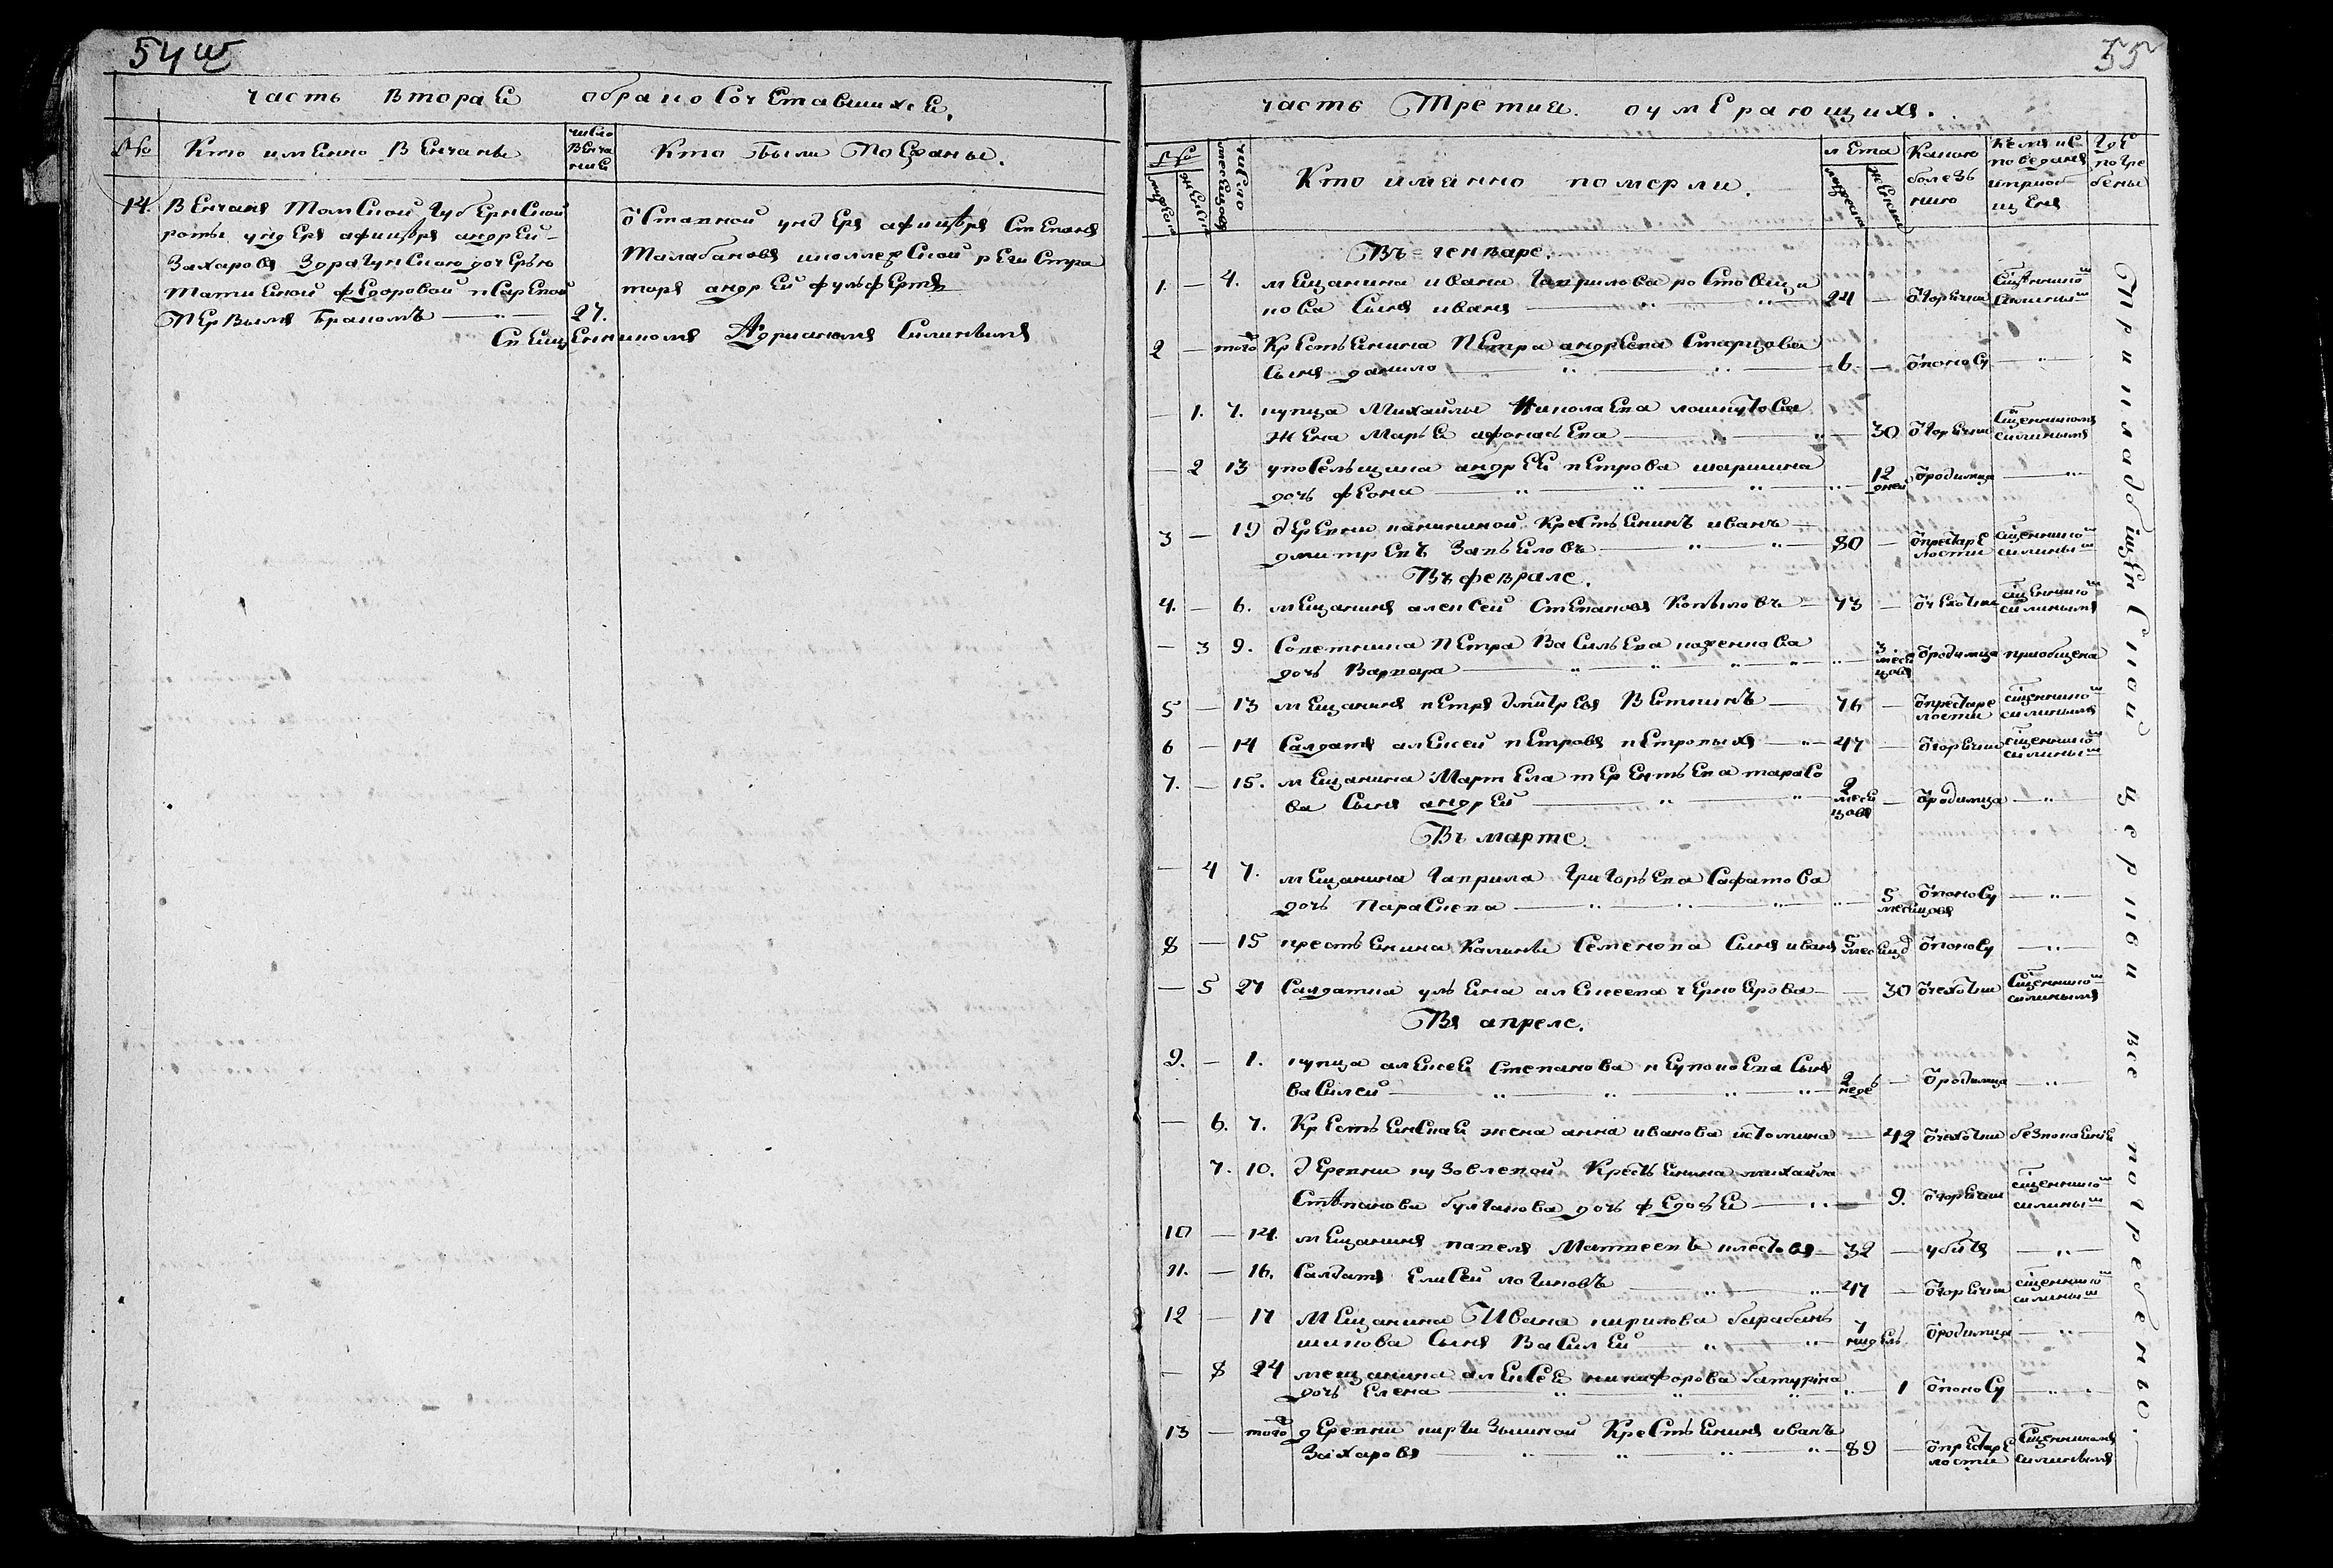 54
часть вторая о брако сочетавшихся.
№
Кто имянно венчаны
число венча ние
Кто были поезжаны.
14. венчанъ томской губернской
роты ундеръ афицеръ андрей
Захаровъ дочерью
федоровой
первымъ бракомъ — 27.
отставной ундеръ афицеръ степанъ
Талабановъ и коллежской регистра
торъ андрей
Адрианомъ Силинымъ
55
часть Третия о умерающихъ.
№
мужеска
женска
число
месецовъ
Кто имянно померли.
лета
мужеска
женска
Какою
болезь
нию
кемъ ис
поведанъ
и приоб
щенъ
где
погре
бены
Въ генваре.
1. — 4. мещанина ивана гаврилова ростовщи
кова сынъ иванъ — 24 — отгорячки сщеннико силины
2 — того крестьянина Петра андреева старцова
сынъ данило — 6 — отпоносу — " —
— 1. 7. купца Михайлы Николаева
жена марья афонасьева — 30 отгорячки сщенникомъ силинымъ
— 2 13 упосельщика андрея петрова шаршина
дочь феона — 12 дней отродимца — " —
3 — 19 деревни паниной крестьянинъ иванъ
дмитревъ Завьяловъ — 80 — отпрестаре лости сщеннико силины
Въ феврале.
4. — 6. мещанинъ алексей степановъ Копыловъ — 73 — отчехотки сщеннико силинымъ
— 3 9. Советника Петра Васильева
дочь варвара — 3 меся цовъ отродимца приобщена
5 — 13 мещанинъ петръ дмитревъ Веткинъ — 76 — отпрестаре лости сщеннико силинымъ
6 — 14 салдатъ алексей петровъ петровыхъ — 47 — отгорячки сщеннико силины
7. — 15. мещанина Мартела терентьева тарасо
ва сынъ андрей — 2 меся цовъ — отродимца — " —
Въ марте.
— 4 7. мещанина гаврила григорьева сафатова
дочь параскева — 5 месяцовъ отпоносу — " —
8 — 15 крестьянина Калины семенова сынъ иванъ 5 месяцо отпоносу — " —
— 5 27 салдатка ульяна алексеева черноярова — 30 отчехотки сщеннико силинымъ
Въ апреле.
9. — 1. купца алексея степанова сынъ
василей — 2 неде — отродимца "
— 6. 7. крестьянская жена анна иванова истомина — 42 отчехотки безпокаяния
7. 10. деревни кузовлевой крестьянина михайла
степанова булгакова дочь федосья — 9. отгорячки сщеннико силины
10 — 14. мещанинъ павелъ матвеевъ — 32 — убитъ — " —
11. — 16. салдатъ елисей логиновъ — 47 — отгорячки сщеннико силины
12 — 17 мещанина Ивана кирилова барабань
щикова сынъ василей — 7 нидель отродимца — " —
— 8 24 мещанина алексея никифорова батурина
дочь елена — 1 отпоносу — " —
13 — того деревни киргизышной крестьянинъ иванъ
Захаровъ — 89 — отпрестаре лости сщенникомъ силинымъ
При кладбищенской церкви все погребены.